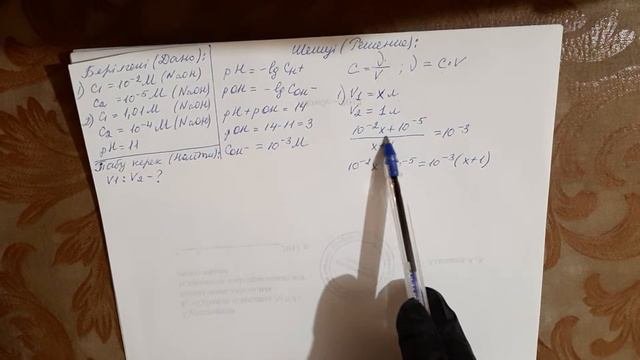 Берілгені (Дано):
1) C1 = 10⁻² M (NaOH)
C2 = 10⁻⁵ M (NaOH)
2) C1 = 1,01 M (NaOH)
C2 = 10⁻⁴ M (NaOH)
pH = 11
Табу керек (Найти):
V1 : V2 - ?
pH = -lg CH+
pOH = -lg COH-
pH + pOH = 14
pOH = 14-11 = 3
COH- = 10⁻³ M
Шешуі (Решение):
C = ν/V ; ν = C·V
1) V1 = x л
V2 = 1 л
10⁻²x + 10⁻⁵
= 10⁻³
x
10⁻²x ⁻⁵ = 10⁻³ (x+1)